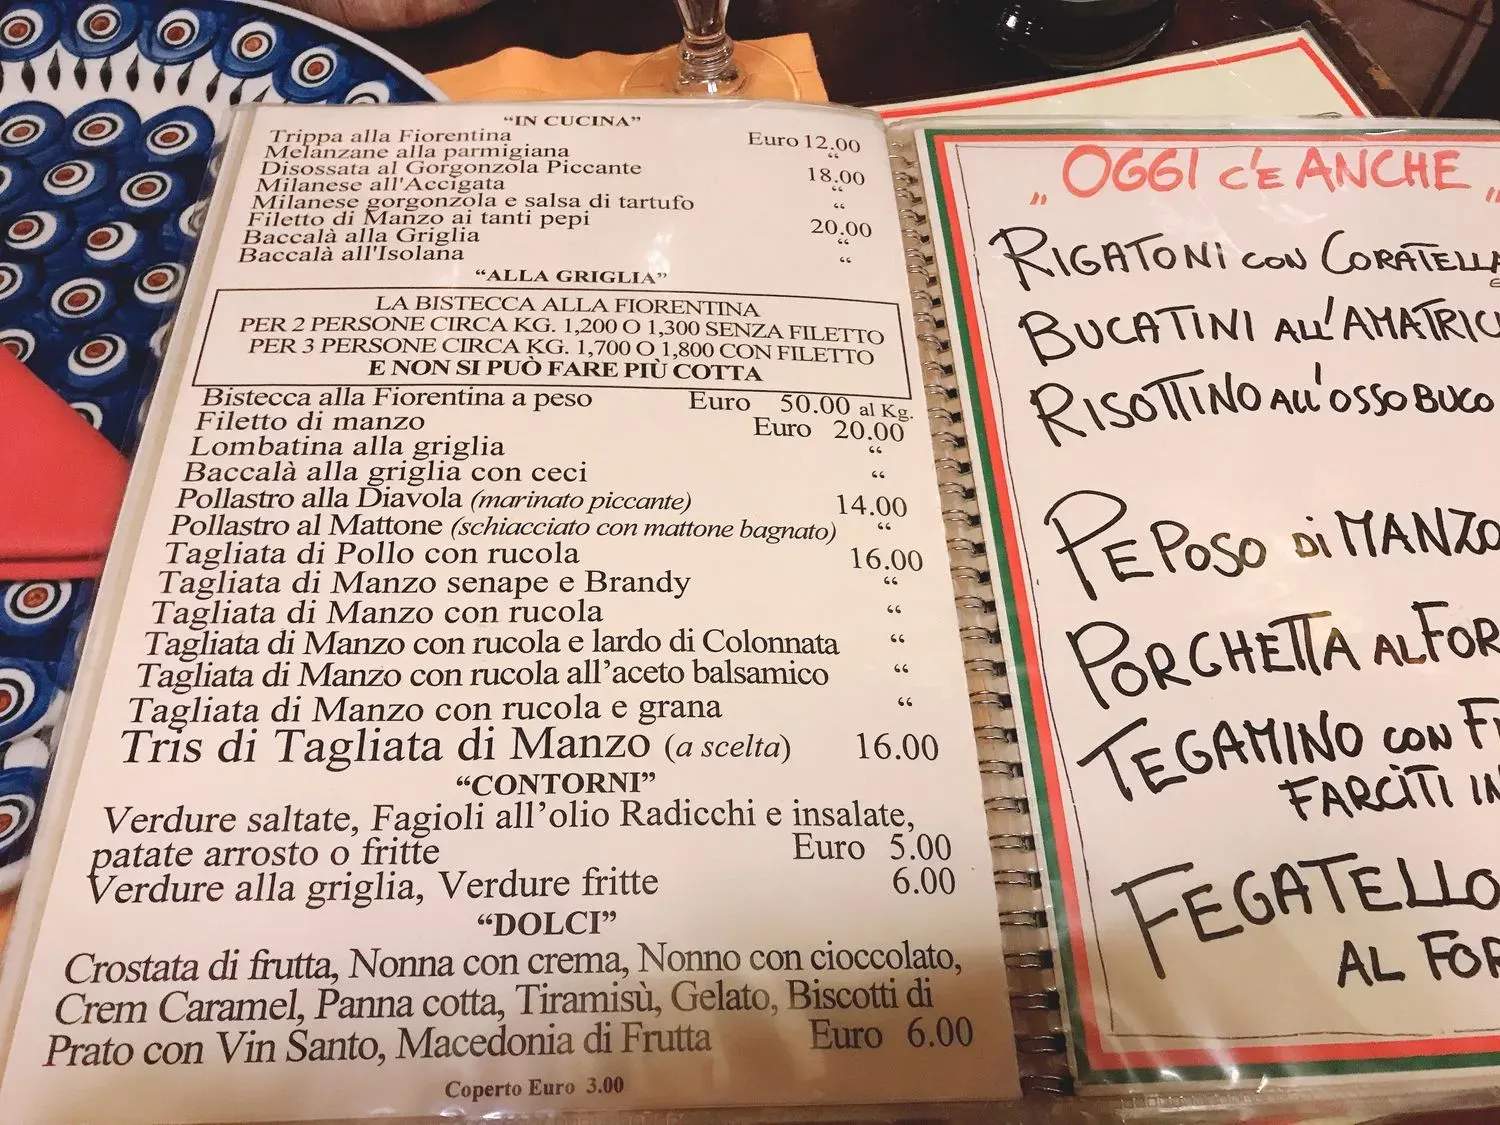 “IN CUCINA”
Trippa alla Fiorentina Euro 12.00
Melanzane alla parmigiana “
Disossata al Gorgonzola Piccante 18.00
Milanese all'Accigata “
Milanese gorgonzola e salsa di tartufo “
Filetto di Manzo ai tanti pepi 20.00
Baccalà alla Griglia “
Baccalà all'Isolana “
“ALLA GRIGLIA”
LA BISTECCA ALLA FIORENTINA
PER 2 PERSONE CIRCA KG. 1,200 O 1,300 SENZA FILETTO
PER 3 PERSONE CIRCA KG. 1,700 O 1,800 CON FILETTO
E NON SI PUÒ FARE PIÙ COTTA
Bistecca alla Fiorentina a peso Euro 50.00 al Kg.
Filetto di manzo Euro 20.00
Lombatina alla griglia “
Baccalà alla griglia con ceci “
Pollastro alla Diavola (marinato piccante) 14.00
Pollastro al Mattone (schiacciato con mattone bagnato) “
Tagliata di Pollo con rucola 16.00
Tagliata di Manzo senape e Brandy “
Tagliata di Manzo con rucola “
Tagliata di Manzo con rucola e lardo di Colonnata “
Tagliata di Manzo con rucola all’aceto balsamico “
Tagliata di Manzo con rucola e grana “
Tris di Tagliata di Manzo (a scelta) 16.00
“CONTORNI”
Verdure saltate, Fagioli all’olio Radicchi e insalate,
patate arrosto o fritte Euro 5.00
Verdure alla griglia, Verdure fritte 6.00
“DOLCI”
Crostata di frutta, Nonna con crema, Nonno con cioccolato,
Crem Caramel, Panna cotta, Tiramisù, Gelato, Biscotti di
Prato con Vin Santo, Macedonia di Frutta Euro 6.00
Coperto Euro 3.00
„OGGI C'È ANCHE„
RIGATONI CON CORATELLA
BUCATINI ALL'AMATRIC
RISOTTINO ALL'OSSOBUCO
PEPOSO Di MANZO
PORCHETTA AL FOR
TEGAMINO CON F
FARCITI IN
FEGATELLO
AL FOR